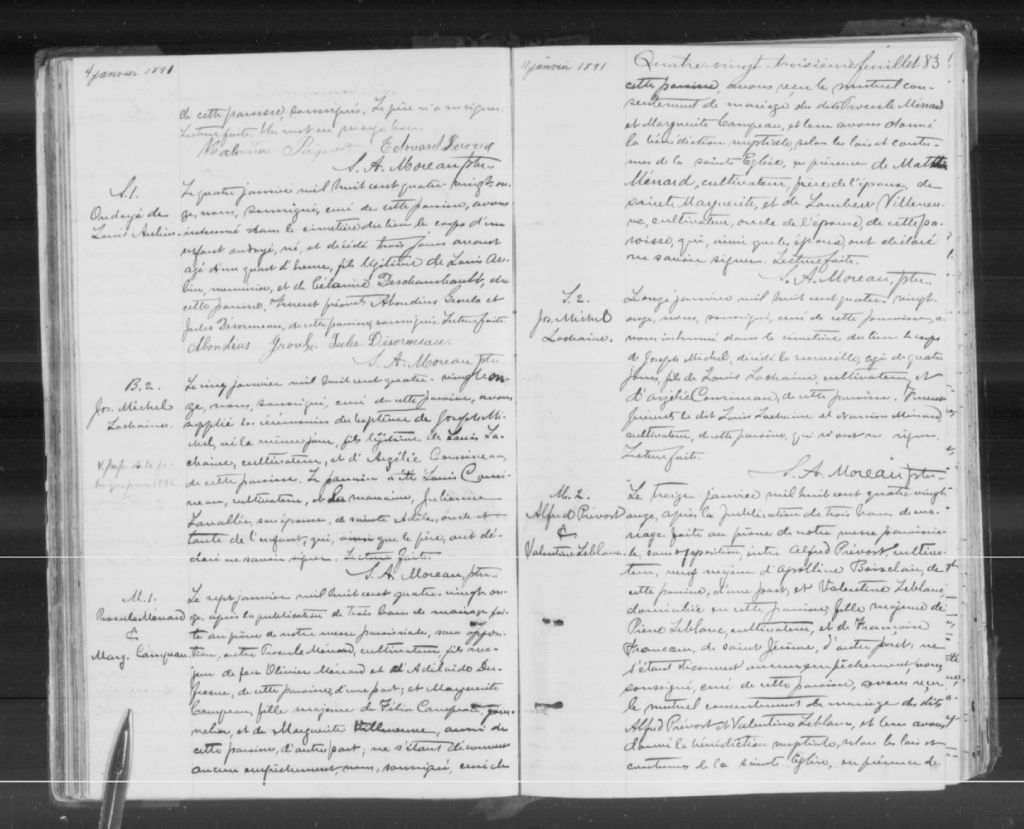 4 janvier 1891
de cette paroisse, soussignés. Le père n'a su signer.
Lecture faite. Un mot en marge bon.
Edouard
S. A. Moreau, ptre.
S. 1.
Ondoyé de
Louis Aubin
Le quatre janvier mil huit cent quatre-vingt-on-
ze, nous, soussigné, curé de cette paroisse, avons
inhumé dans le cimetière du lieu le corps d'un
enfant ondoyé, né, et décédé trois jours avant
agé d'un quart d'heure, fils légitime de Louis Au-
bin, menuisier, et de Célanire Deschambeault, de
cette paroisse. Furent présents Abondius Groulx et
Jules Désormeau, de cette paroisse, soussignés. Lecture faite
Abondius Groulx. Jules Désormeau.
S. A. Moreau, ptre.
B. 2.
Jos. Michel
Lachaine.
Le cinq janvier mil huit cent quatre-vingt-on-
ze, nous, soussigné, curé de cette paroisse, avons
supplié les cérémonies du baptême de Joseph Mi-
chel, né le même jour, fils légitime de Louis La-
chaine, cultivateur, et d'Azélie Cousineau,
de cette paroisse. Le parrain a été Louis Cousi-
neau, cultivateur, et la marraine, Julienne
Lavallée, son épouse, de sainte Adèle, oncle et
tante de l'enfant, qui, ainsi que le père, ont dé-
claré ne savoir signer. Lecture faite.
S. A. Moreau, ptre.
M. 1.
Procule Ménard
&
Marg. Campeau
Le sept janvier mil huit cent quatre-vingt-on-
ze, après la publication de trois bans de mariage fai-
te au prône de notre messe paroissiale, sans opposi-
tion, entre Procule Ménard, cultivateur, fils ma-
jeur de feu Olivier Ménard et d'Adélaïde Du-
fresne, de cette paroisse, d'une part; et Marguerite
Campeau, fille majeure de Félix Campeau, jour-
nalier, et de Marguerite Villeneuve, aussi de
cette paroisse, d'autre part; ne s'étant découvert
aucun empêchement, nous, soussigné, curé de
11 janvier 1891
Quatre-vingt-troisième feuillet 83
cette paroisse, avons reçu le mutuel con-
sentement de mariage des dits Procule Ménard
et Marguerite Campeau, et leur avons donné
la bénédiction nuptiale, selon les lois et coutu-
mes de la sainte Eglise, en présence de
Ménard, cultivateur, frère de l'époux, de
sainte Marguerite, et de Lambert Villeneu-
ve, cultivateur, oncle de l'épouse, de cette pa-
roisse, qui, ainsi que les époux, ont déclaré
ne savoir signer. Lecture faite.
S. A. Moreau, ptre.
S. 2.
Jos. Michel
Lachaine.
Le onze janvier mil huit cent quatre-vingt-
onze, nous, soussigné, curé de cette paroisse, a-
vons inhumé dans le cimetière du lieu le corps
de Joseph Michel, décédé la surveille, agé de quatre
jours, fils de Louis Lachaine, cultivateur, et
d'Azélie Cousineau, de cette paroisse. Furent
présents le dit Louis Lachaine et Narcisse Ménard,
cultivateur, de cette paroisse, qui n'ont su signer.
Lecture faite.
S. A. Moreau, ptre.
M. 2.
Alfred Prévost
&
Valentine Leblanc
Le treize janvier mil huit cent quatre-vingt-
onze, après la publication de trois bans de ma-
riage faite au prône de notre messe paroissia-
le, sans opposition, entre Alfred Prévost, cultiva-
teur, veuf majeur d'Apolline Boisclair, de
cette paroisse, d'une part, et Valentine Leblanc,
domiciliée en cette paroisse, fille majeure de
Pierre Leblanc, cultivateur, et de Françoise
de saint Jérôme, d'autre part; ne
s'étant découvert aucun empêchement, nous,
soussigné, curé de cette paroisse, avons reçu
le mutuel consentement de mariage des dits
Alfred Prévost et Valentine Leblanc, et leur avons
donné la bénédiction nuptiale, selon les lois et
coutumes de la sainte Eglise, en présence de